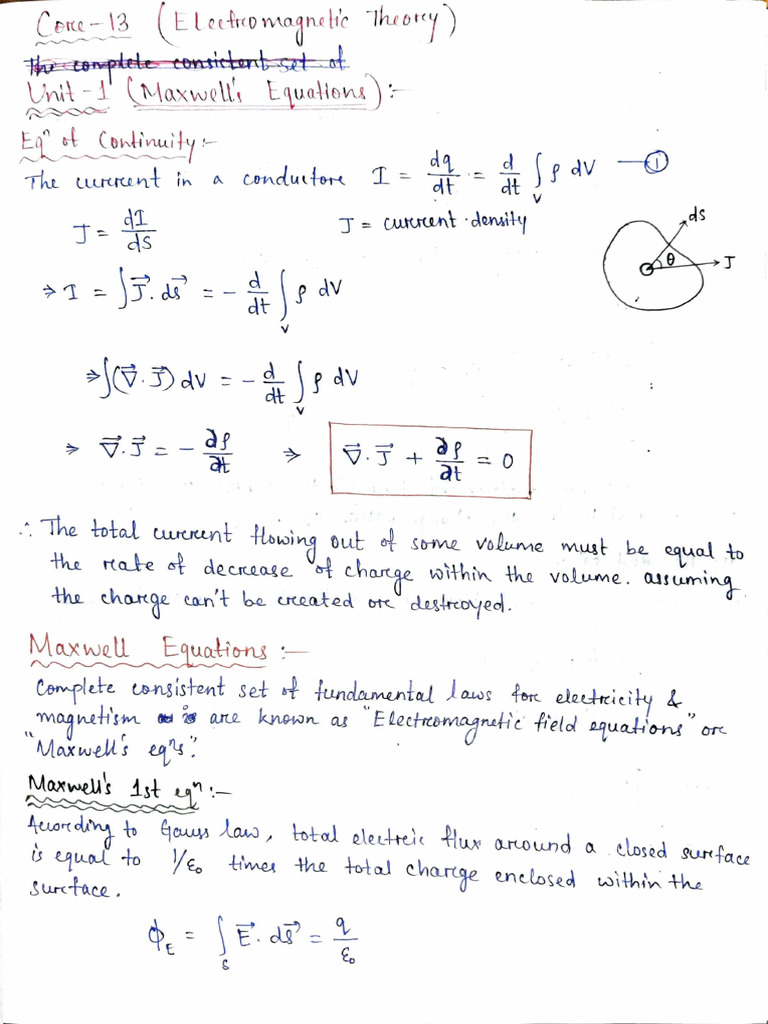 Core-13 (Electromagnetic Theory)
The complete consistent set of
Unit-1 (Maxwell's Equations):-
Eqⁿ of Continuity:-
The current in a conductore I = dq/dt = d/dt ∫_V ρ dV —①
J = dI/dS J = current density
ds
θ
J
⇒ I = ∫J⃗.ds⃗ = - d/dt ∫_V ρ dV
⇒ ∫(∇⃗.J⃗) dV = - d/dt ∫_V ρ dV
⇒ ∇⃗.J⃗ = - ∂ρ/∂t ⇒ ∇⃗.J⃗ + ∂ρ/∂t = 0
∴ The total current flowing out of some volume must be equal to
the rate of decrease of charge within the volume. assuming
the charge can't be created or destroyed.
Maxwell Equations:-
Complete consistent set of fundamental laws for electricity &
magnetism are known as "Electromagnetic field equations" or
"Maxwell's eqⁿs".
Maxwell's 1st eqⁿ:-
According to Gauss law, total electric flux around a closed surface
is equal to 1/ε₀ times the total charge enclosed within the
surface.
ϕ_E = ∫_S E⃗.ds⃗ = q/ε₀